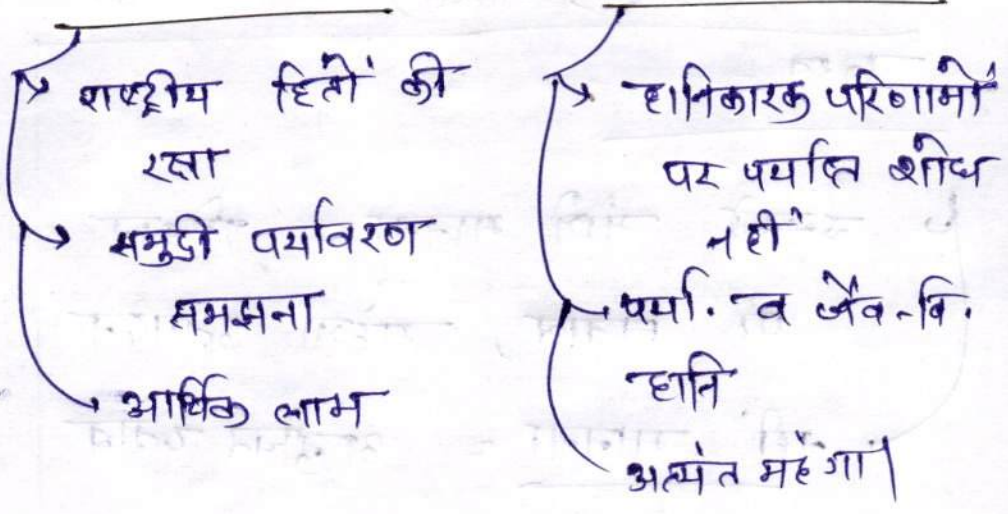 राष्ट्रीय हितों की
रक्षा
समुद्री पर्यावरण
समझना
आर्थिक लाभ
हानिकारक परिणामों
पर पर्याप्त शोध
नहीं
पर्या. व जैव-वि.
हानि
अत्यंत महँगा।